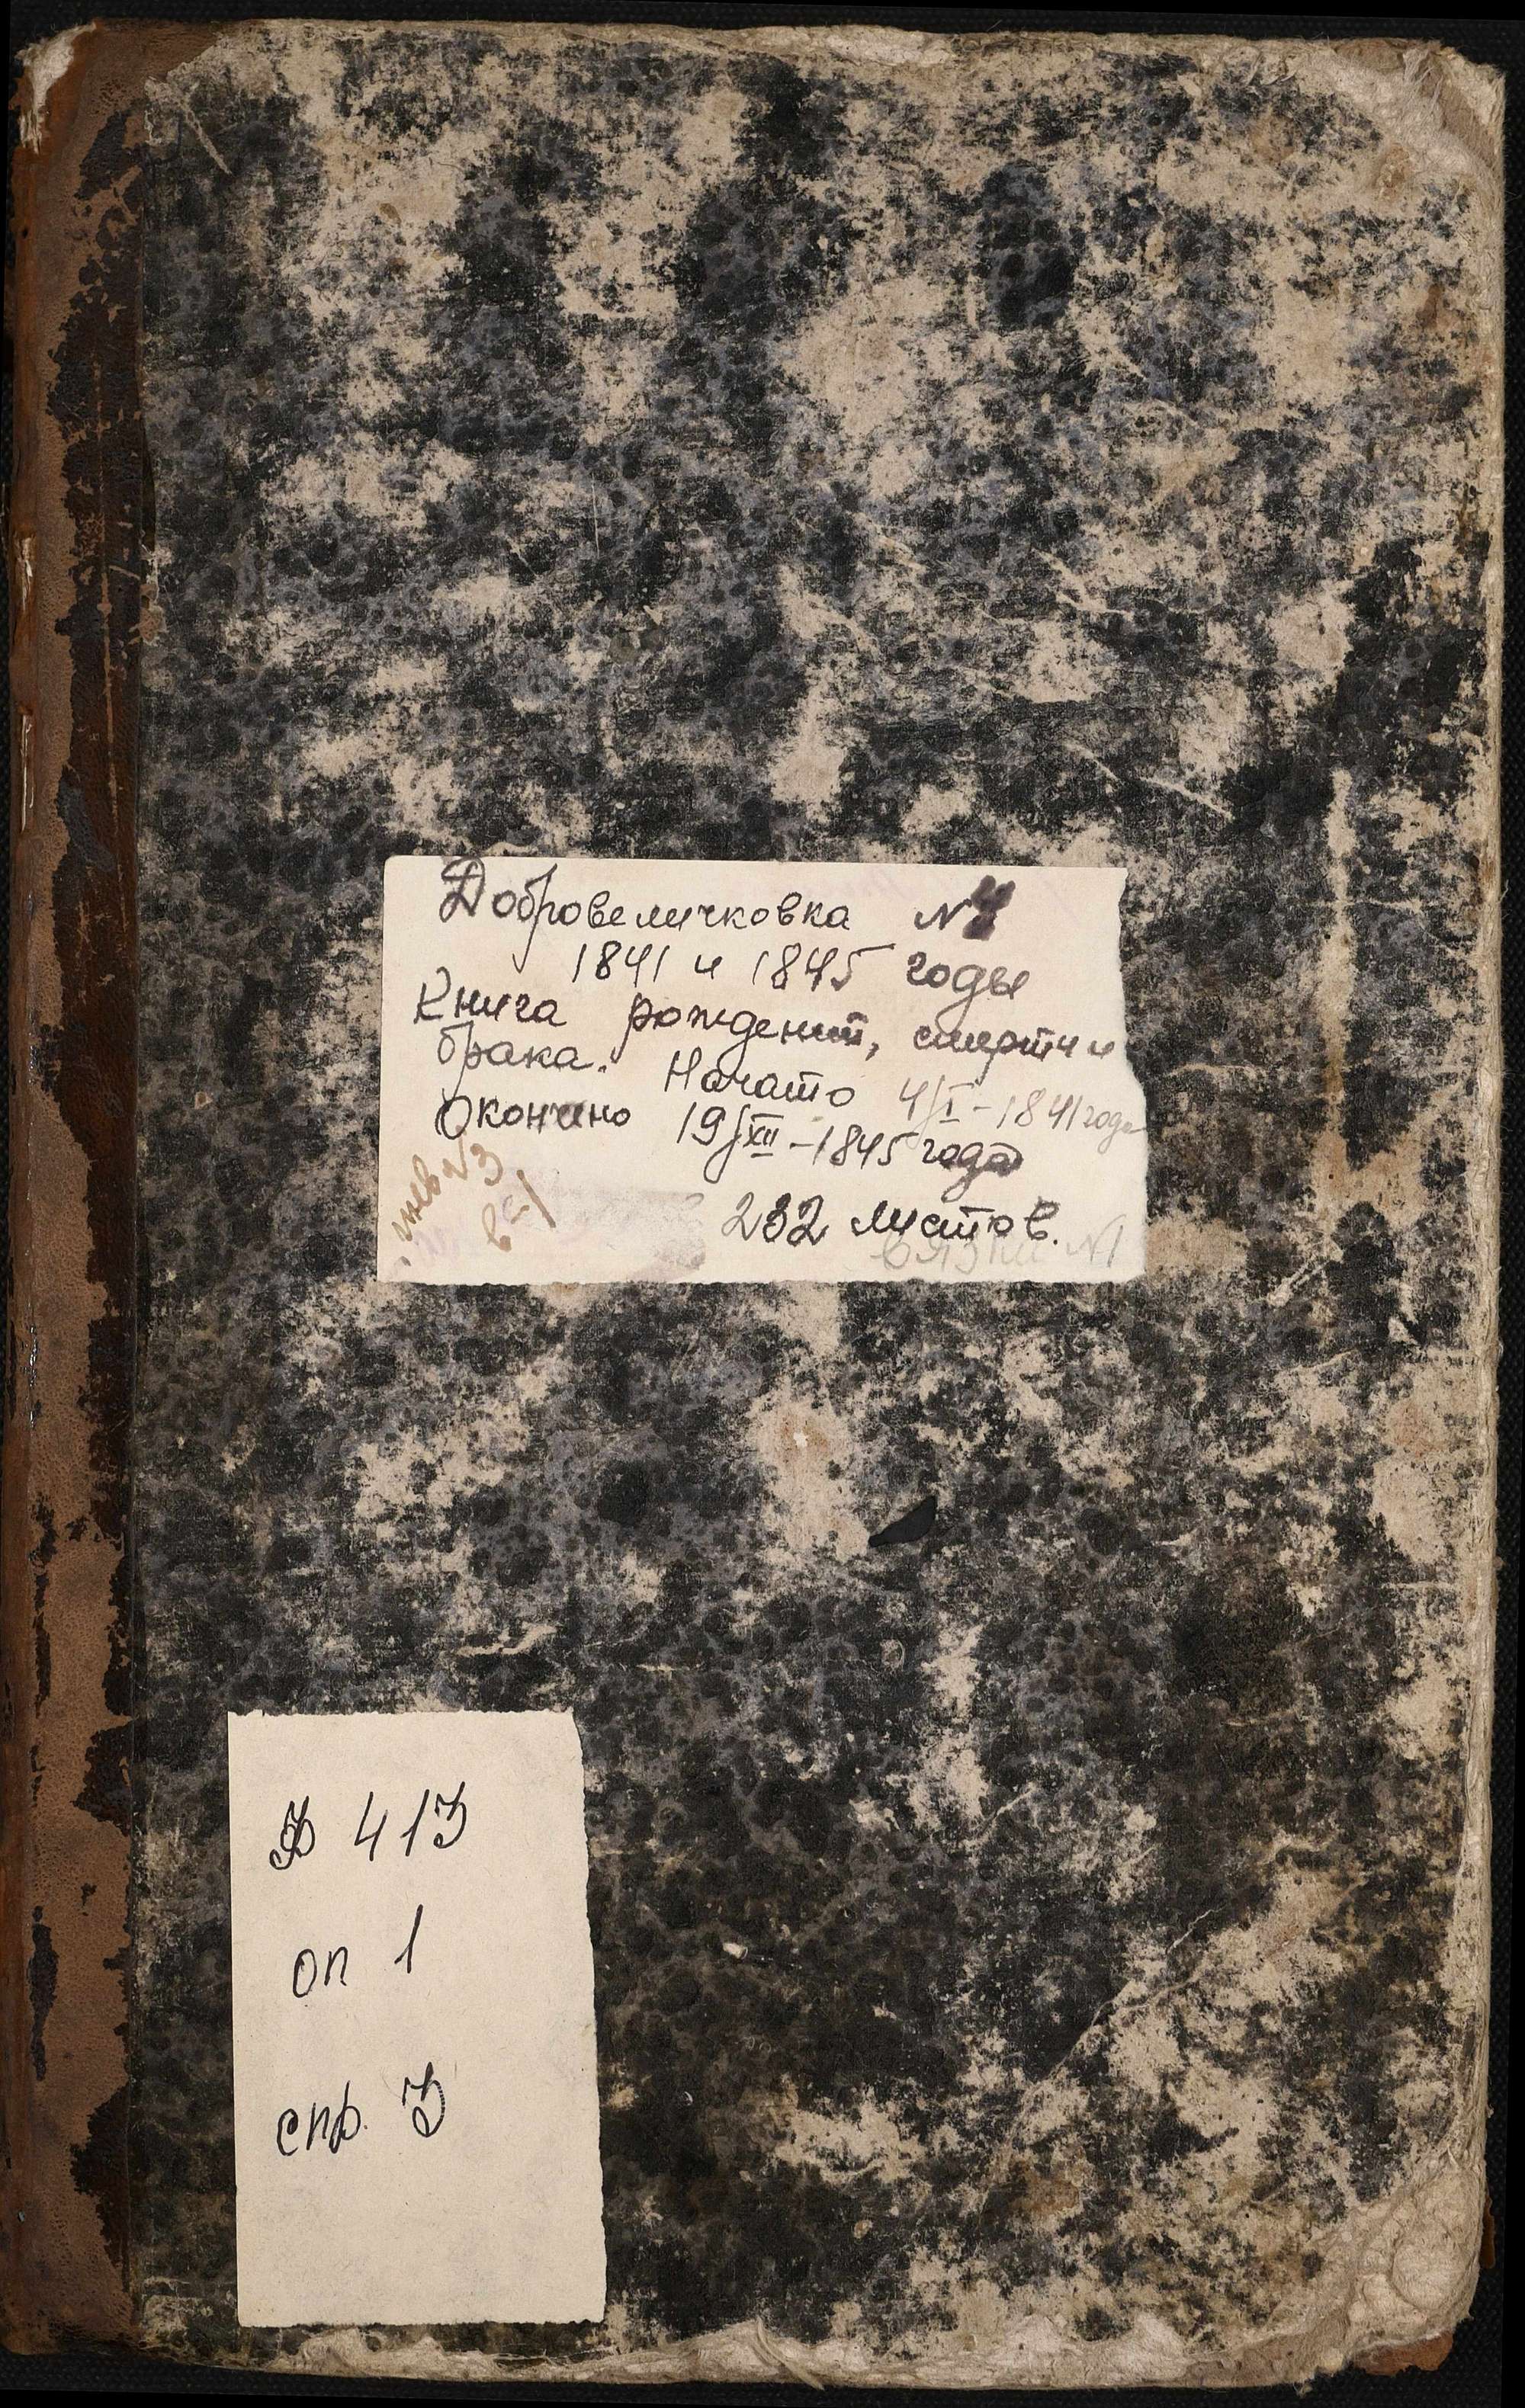 Добровеличковка №4
1841 и 1845 годы
Книга рождений, смерти и
брака. Начато 4/I-1841 года
Окончено 19/XII-1845 года
232 листов.
вязки №1
№3
в-1
Ф 413
оп 1
спр. 3